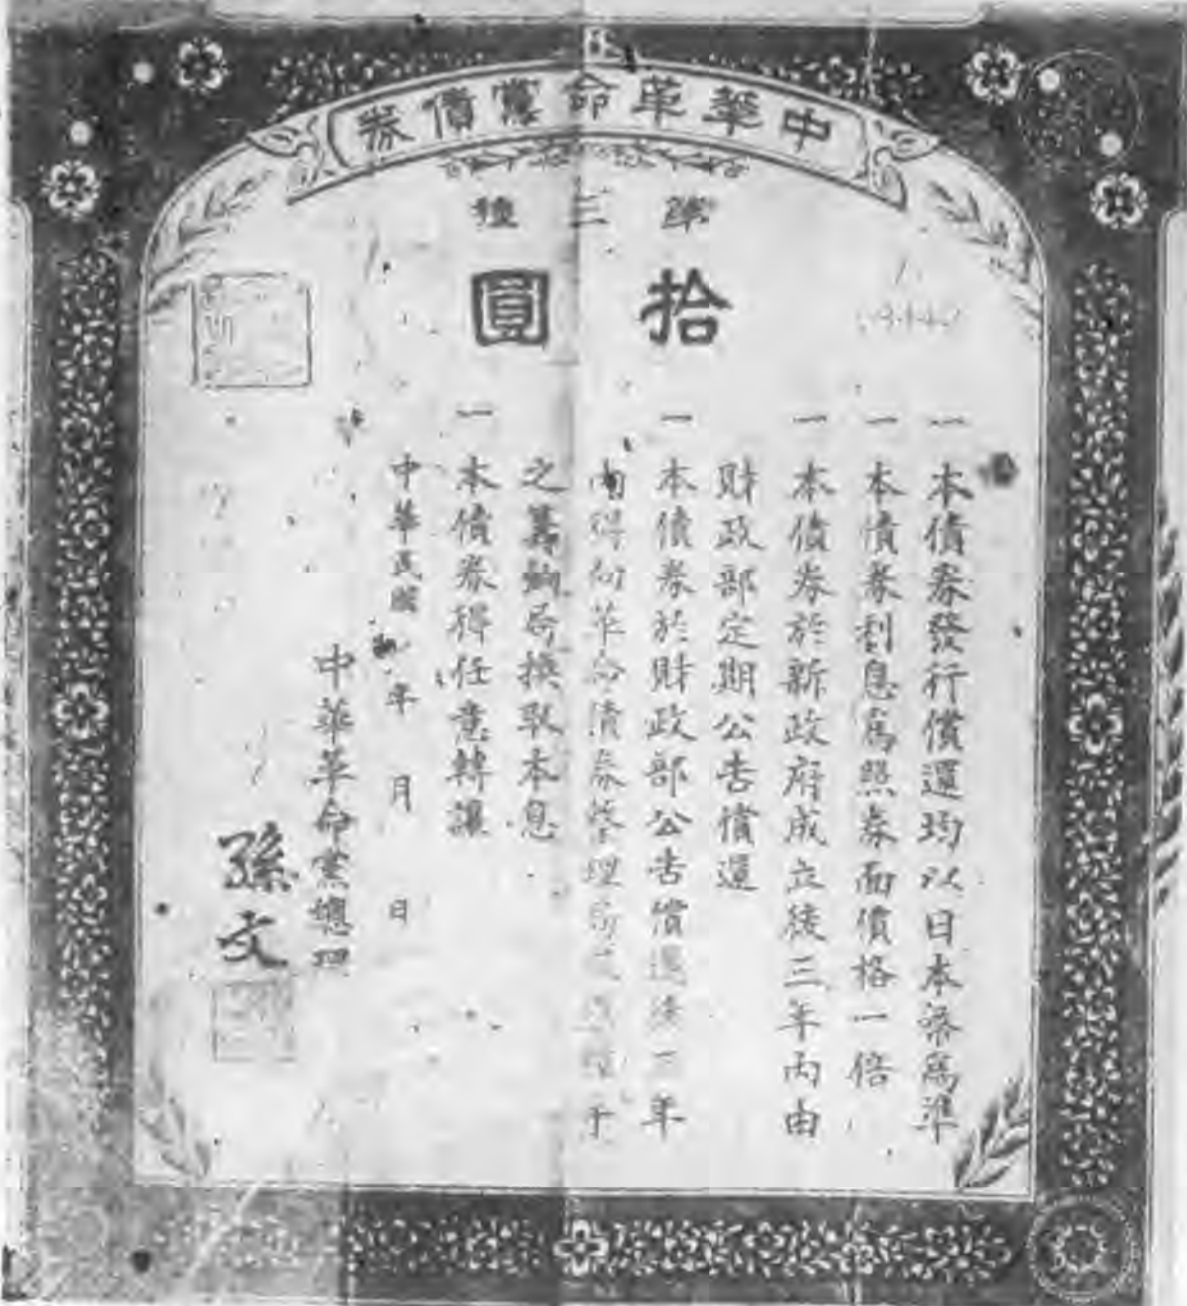 中華革命黨債券
第三種
拾圓
一 本債券發行償還均以日本幣爲準
一 本債券利息爲照券面價格一倍
一 本債券於新政府成立後三年內由
財政部定期公告償還
一 本債券於財政部公告償還後三年
內得向革命債券整理局 于
之籌餉局換取本息
一 本債券得任意轉讓
中華民國 年 月 日
中華革命黨總理
孫文